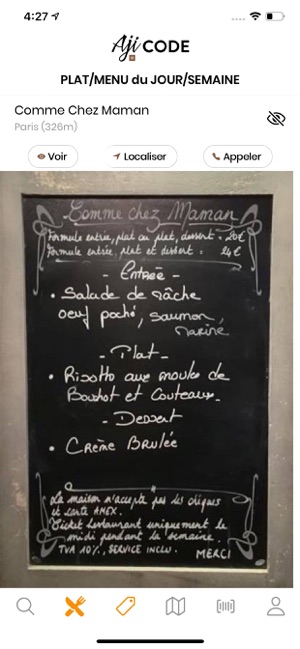 4:27
Aji CODE
PLAT/MENU du JOUR/SEMAINE
Comme Chez Maman
Paris (326m)
Voir
Localiser
Appeler
Comme chez Maman
Formule entrée, plat ou plat, dessert : 20€
Formule entrée, plat et dessert : 24€
- Entrée -
• Salade de mâche
oeuf poché, saumon
mariné
- Plat -
• Risotto aux moules de
Bouchot et Couteaux.
- Dessert
• Crème Brulée
La maison n'accepte pas les chèques
et carte AMEX.
Ticket restaurant uniquement le
midi pendant la semaine.
TVA 10%, SERVICE INCLU.
MERCI